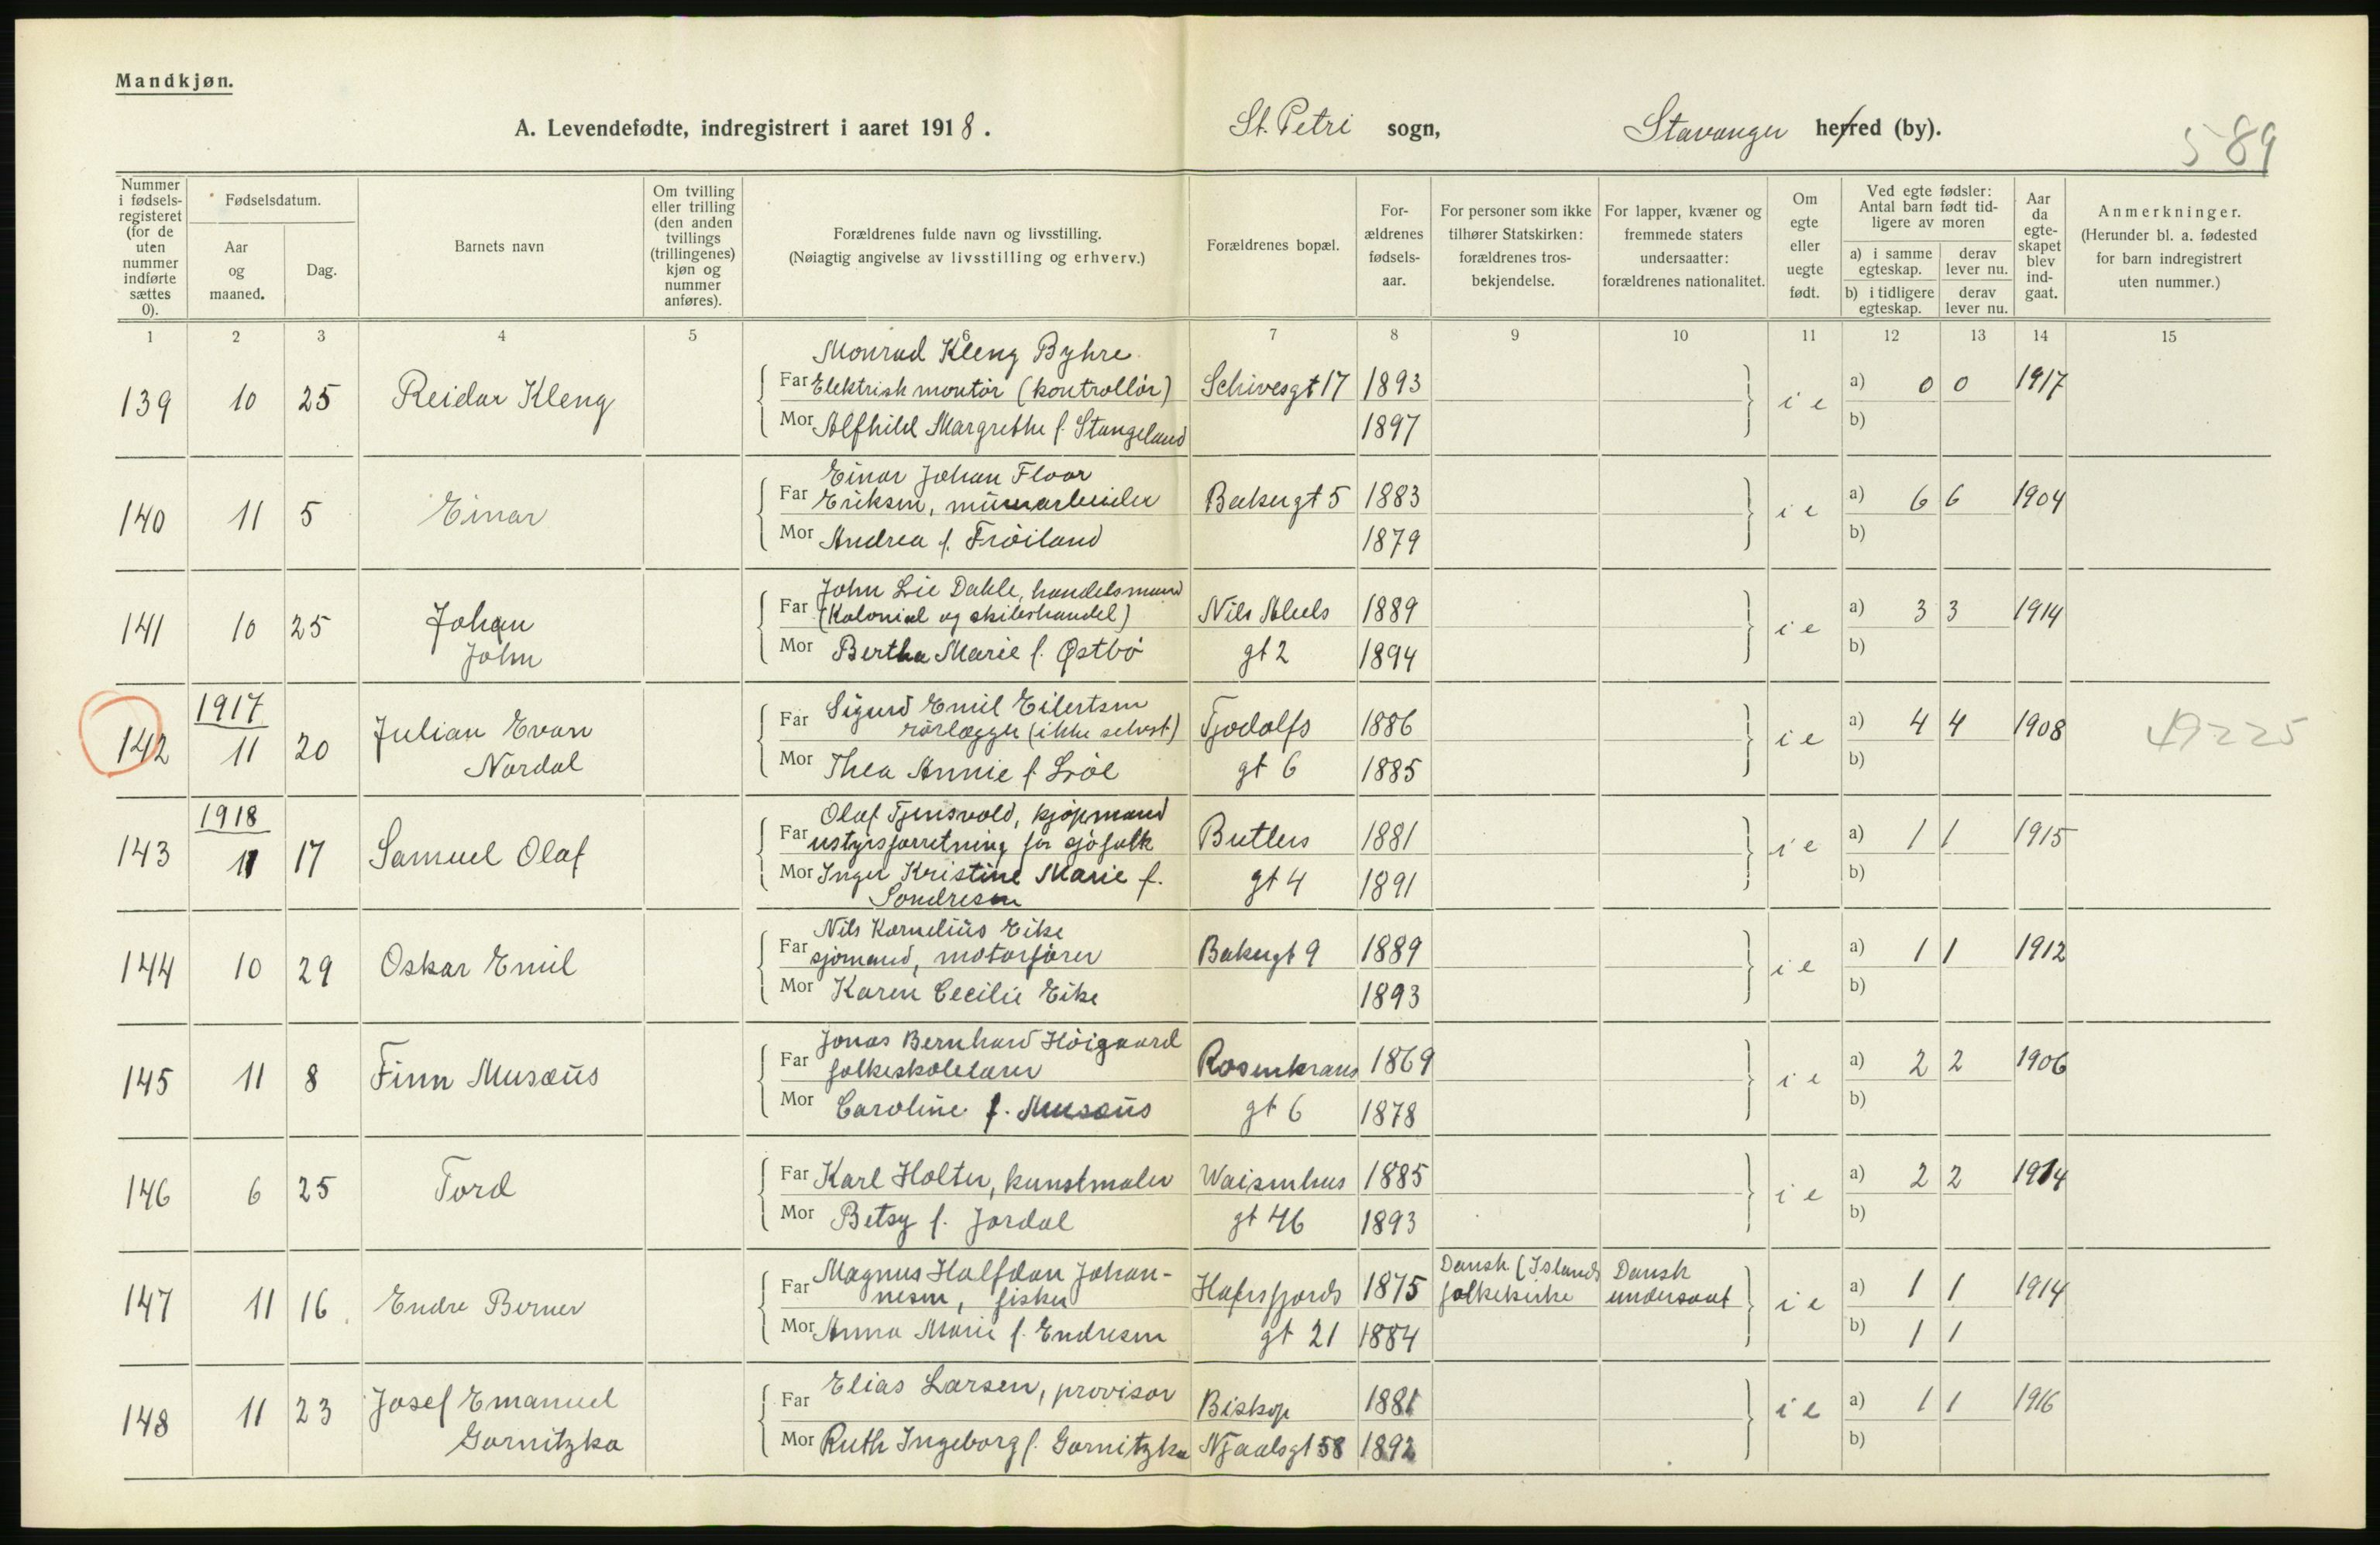 Mandkjøn.
A. Levendefødte, indregistrert i aaret 1918. St. Petri sogn, Stavanger herred (by).
589
Nummer i fødselsregisteret (for de uten nummer indførte sættes 0).
Fødselsdatum.
Aar og maaned.
Dag.
Barnets navn
Om tvilling eller trilling (den anden tvillings (trillingenes) kjøn og nummer anføres).
Forældrenes fulde navn og livsstilling.
(Nøiagtig angivelse av livsstilling og erhverv.)
Forældrenes bopæl.
Forældrenes fødselsaar.
For personer som ikke tilhører Statskirken: forældrenes trosbekjendelse.
For lapper, kvæner og fremmede staters undersaatter: forældrenes nationalitet.
Om egte eller uegte født.
Ved egte fødsler: Antal barn født tidligere av moren
a) i samme egteskap. derav lever nu.
b) i tidligere egteskap. derav lever nu.
Aar da egteskapet blev indgaat.
Anmerkninger.
(Herunder bl. a. fødested for barn indregistrert uten nummer.)
1 2 3 4 5 6 7 8 9 10 11 12 13 14 15
Monrad Kleng Byhre
139 10 25 Reidar Kleng Far Elektrisk montör (kontrollör) Schivesgt 17 1893 i e a) 0 0 1917
Mor Alfhild Margrethe f. Stangeland 1897 b)
Einar Johan Floor
140 11 5 Einar Far Eriksen, murarbeider Bakergt 5 1883 i e a) 6 6 1904
Mor Andrea f. Fröiland 1879 b)
John Lie Dahle, handelsmand
141 10 25 Johan Far (Kolonial og skibshandel) Nils Abels 1889 i e a) 3 3 1914
John Mor Bertha Marie f. Østbö gt 2 1894 b)
1917
Sigurd Emil Eilertsen
142 11 20 Julian Evan Far rörlægger (ikke selvst) Tjodolfs 1886 i e a) 4 4 1908 49225
Nordal Mor Thea Annie f. gt 6 1885 b)
1918
Olaf Tjensvold, kjöpmand
143 11 17 Samuel Olaf Far ustyrsforretning for sjöfolk Butlers 1881 i e a) 1 1 1915
Mor Inger Kristine Marie f. gt 4 1891 b)
Sondresen
Nils Kornelius Eike
144 10 29 Oskar Emil Far sjömand, motorförer Bakergt 9 1889 i e a) 1 1 1912
Mor Karen Cecilie Eike 1893 b)
Jonas Bernhard Höigaard
145 11 8 Finn Musæus Far folkeskolelærer Rosenkrans 1869 i e a) 2 2 1906
Mor Caroline f. Musæus gt 6 1878 b)
146 6 25 Tord Far Karl Holter, kunstmaler Waisenhus 1885 i e a) 2 2 1914
Mor Betsy f. Jordal gt 46 1893 b)
Magnus Halfdan Johan-
147 11 16 Endre Berner Far nesen, fisker Hafrsfjords 1875 Dansk (Islands folkekirke Dansk undersaat i e a) 1 1 1914
Mor Anna Marie f. Endresen gt 21 1884 b) 1 1
148 11 23 Josef Emanuel Far Elias Larsen, provisor Biskop 1881 i e a) 1 1 1916
Gornitzka Mor Ruth Ingeborg f. Gornitzka Njaalsgt 58 1892 b)